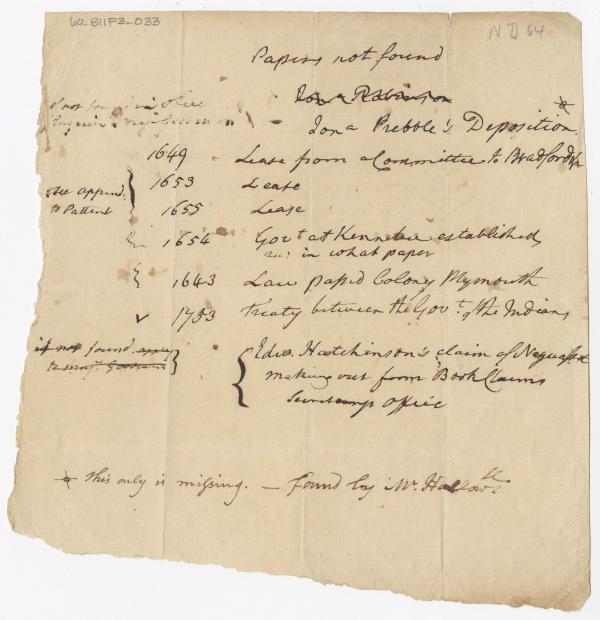 60-B11F3-033
ND 64
Papers not found
Jona Robinson
if not found in Office
Enquire
Jona Prebble's Deposition
1649 Lease from a Committee to Bradford &c
see append. to Pattent
1653 Lease
1655 Lease
1654 Govt at Kennebec established
in what paper
1643 Law passd Colony Plymouth
✓ 1753 Treaty between the Govt & the Indians
if not found apply
to Majr
Edw. Hutchinson's claim of
making out from Book Claims
Secretarys Office
this only is missing. — found by Mr Hallowell